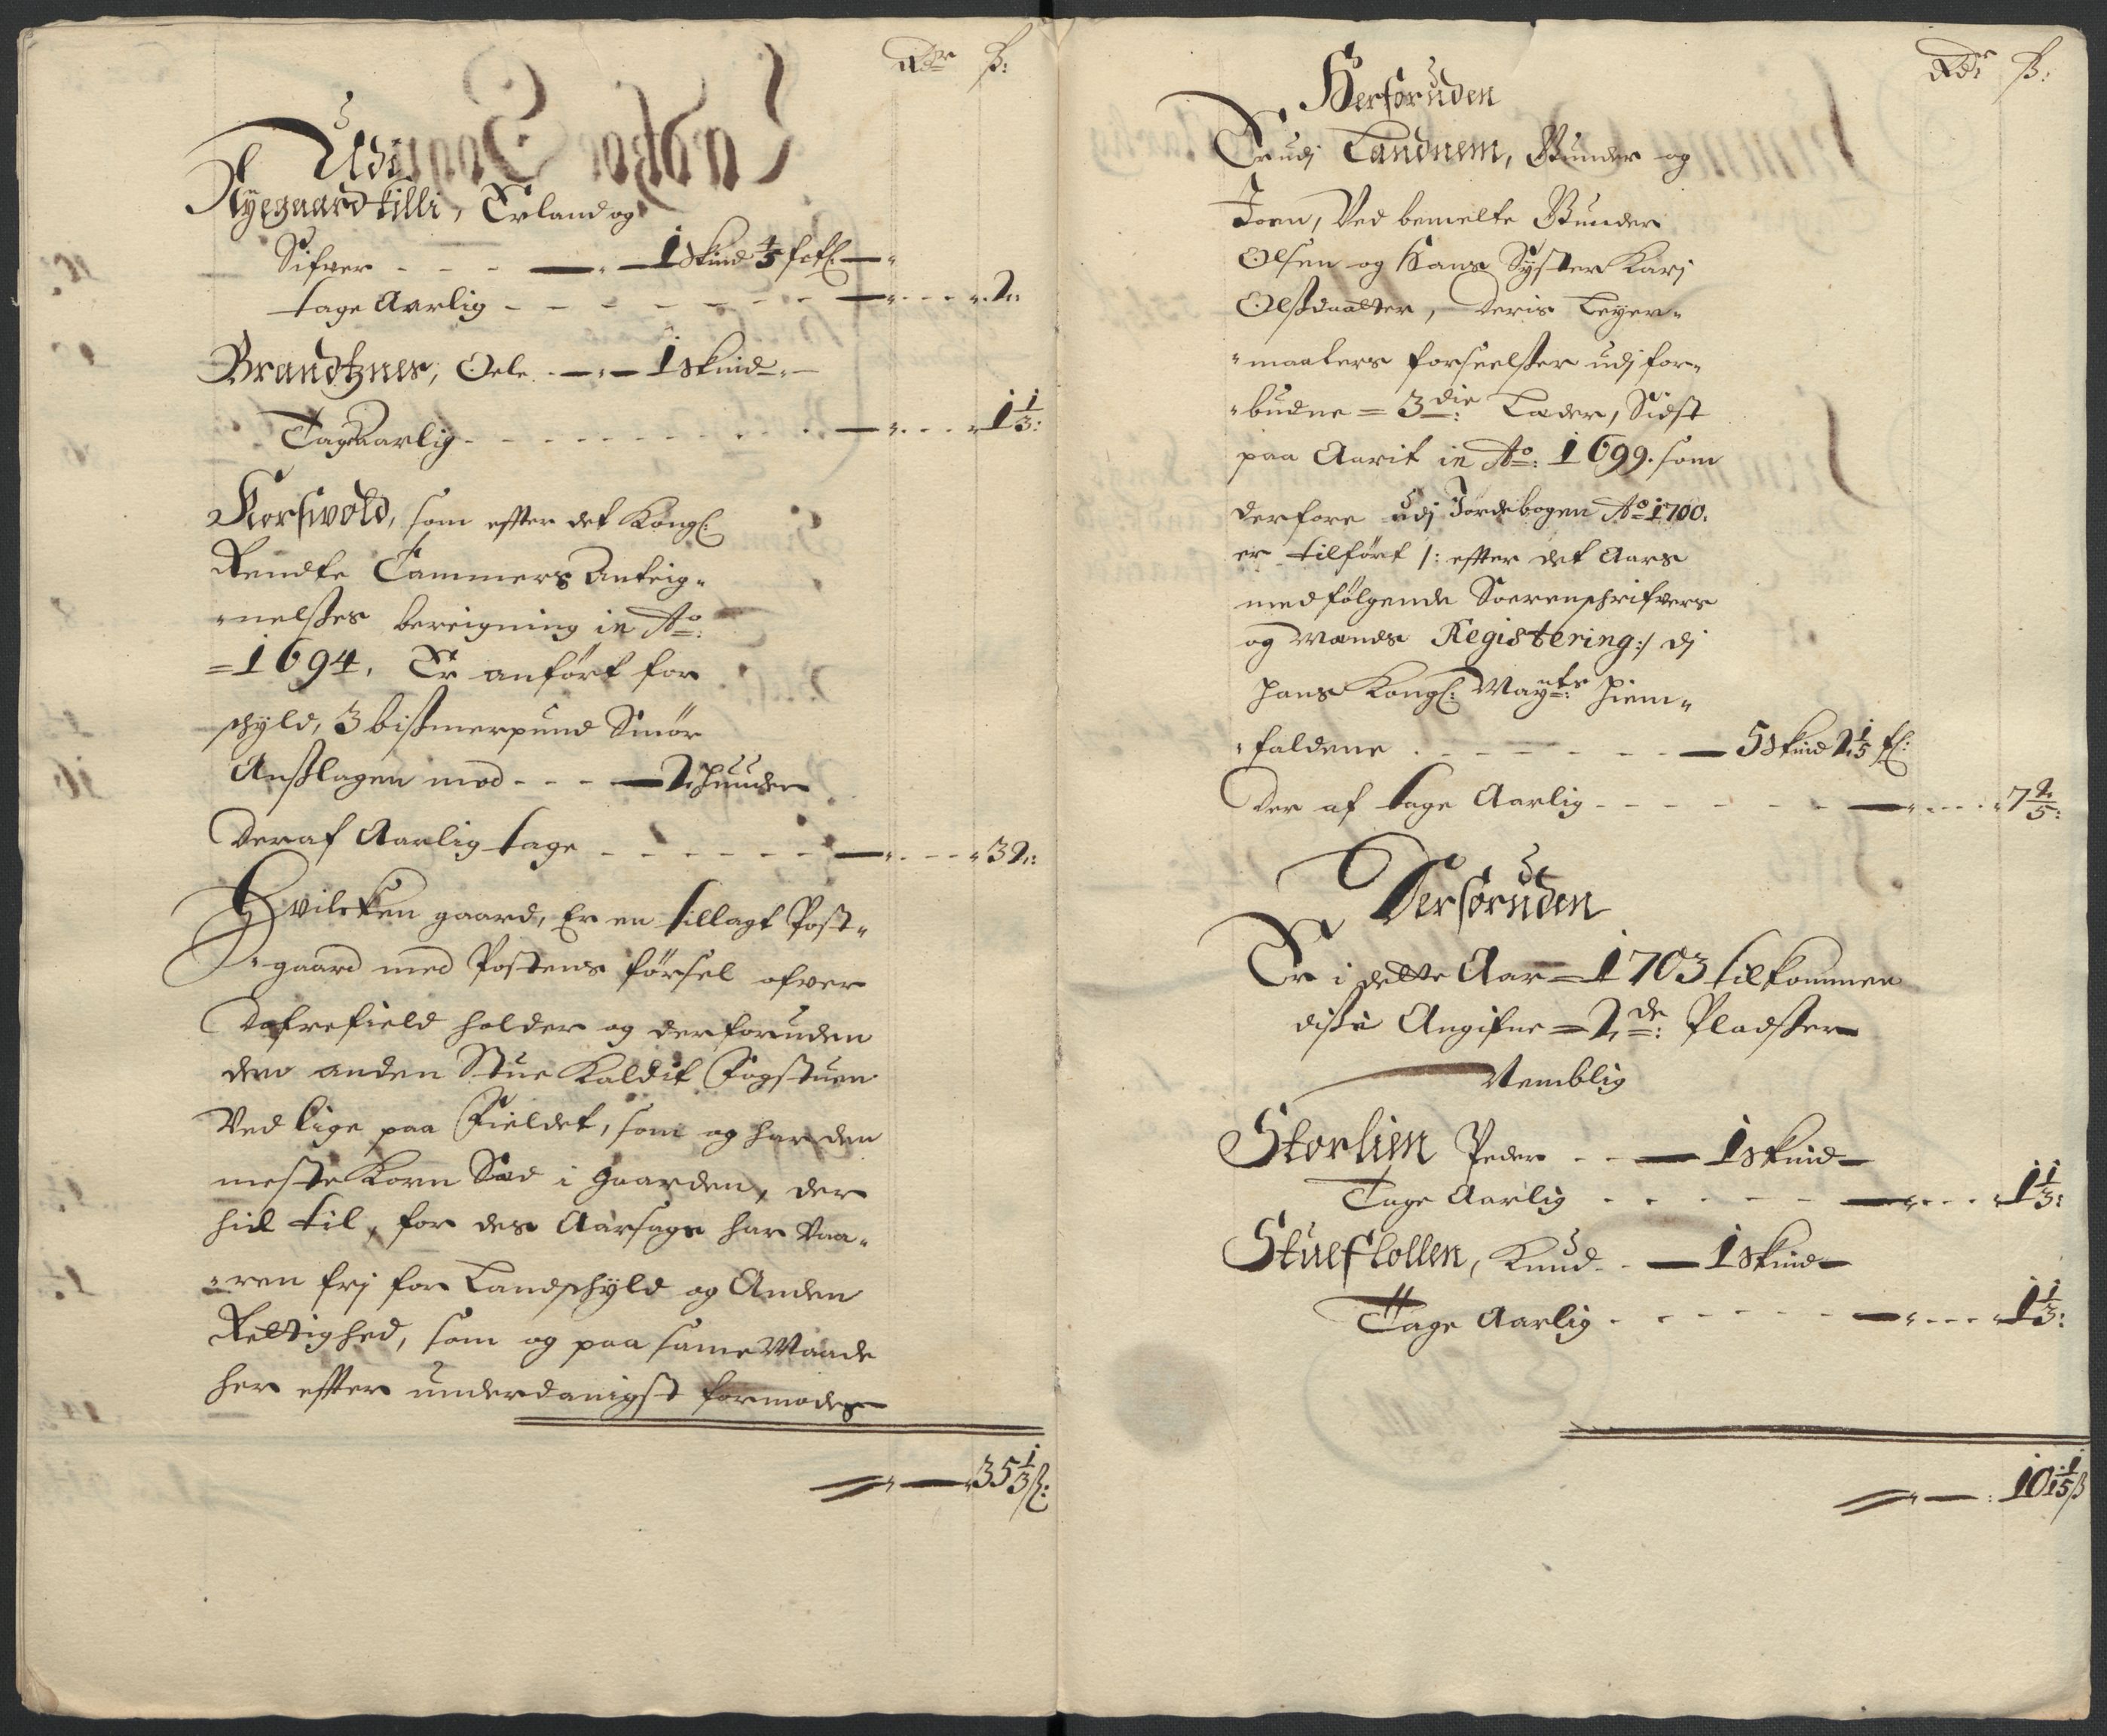 Rdr ß:
Udi
Nyegaard tilli, Erland og
Sifver - - - 1 skind 4/5 fetl:
tage Aarlig - - - 2:
Brandtznes, Oele - 1 skind
Tage aarlig - - - 1 1/3:
Korswold, som effter det Kongl:
Rendte Cammers Anteig-
nelsses bereigning in Ao:
1694. Er anført for
schyld, 3 bissmerpund Smør
Ansslagen med - - - 2 huuder
Deraf Aarlig tage - - - 32:
Hvilcken gaard, Er en tillagt Post-
gaard med Postens førsel ofver
Dofrefield holder og derforuden
den anden Stue Kaldit Fogstuen
Ved lige paa Fieldet, som og har den
meste Korn Sæd i gaarden, der
hid til, for des Aarsage har vaa-
ren frj for Landschyld og Anden
Rettighed, som og paa same Maade
her effter underdanigst formodes
35 1/3 ß:
Rdr ß:
Herforuden
Er udj Landnem, Gunder og
Joen, Ved bemelte Gunder
Olsen og Hans Syster Karj
Olssdaatter, deris Leyer-
maalers forseelsser udj for-
budne 3die: Leder, Sidst
paa Aarit in Ao: 1699. som
derfore udj Jordebogen Ao 1700.
er tilført /: effter det Aars
medfølgende Soerenschrifvers
og Mænds Registering :/ dj
Hans Kongl: Mayts: Hiem-
faldene - - - 5 skind 2 1/5 fl:
Der af tage Aarlig - - - 7 2/5:
Derforuden
Er i dette Aar 1703 tilkommen
disse Angifne 2de: Pladsser
Nemblig
Storlien Peder - - 1 skind
Tage Aarlig - - - 1 1/3:
Stueflollen, Knud - - 1 skind
Tage Aarlig - - - 1 1/3:
10 1/15 ß